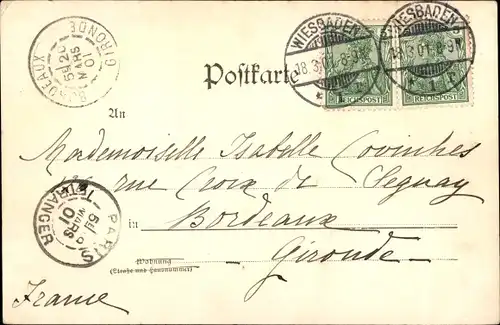 BORDEAUX GIRONDE
5E 20 MARS 01
WIESBADEN
18.3.01.8-9N.
* 1 r
WIESBADEN
18.3.01.8-9N.
* 1 r
REICHSPOST REICHSPOST
Postkarte
An
Mademoiselle Isabelle
rue Croix de Seguey
in Bordeaux
Gironde
PARIS ETRANGER
MARS 01
Wohnung
(Straße und Hausnummer)
France